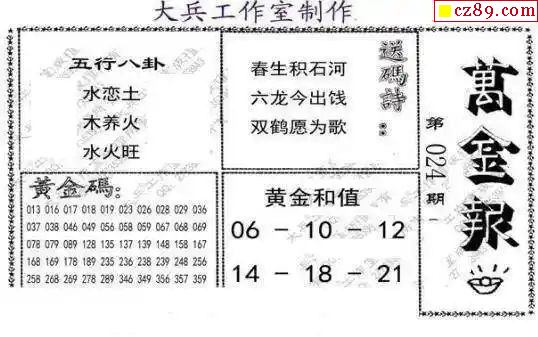 大兵工作室制作
cz89.com
五行八卦
水恋土
木养火
水火旺
送碼詩：
春生积石河
六龙今出饯
双鹤愿为歌
萬金報
第024期
黄金碼：
013 016 017 018 019 023 026 028 029 036
037 038 046 049 056 057 058 067 068 069
078 079 089 128 135 137 139 148 158 167
168 169 178 189 235 236 238 248 249 256
258 268 269 278 289 346 347 356 357 359
黄金和值
06 - 10 - 12
14 - 18 - 21